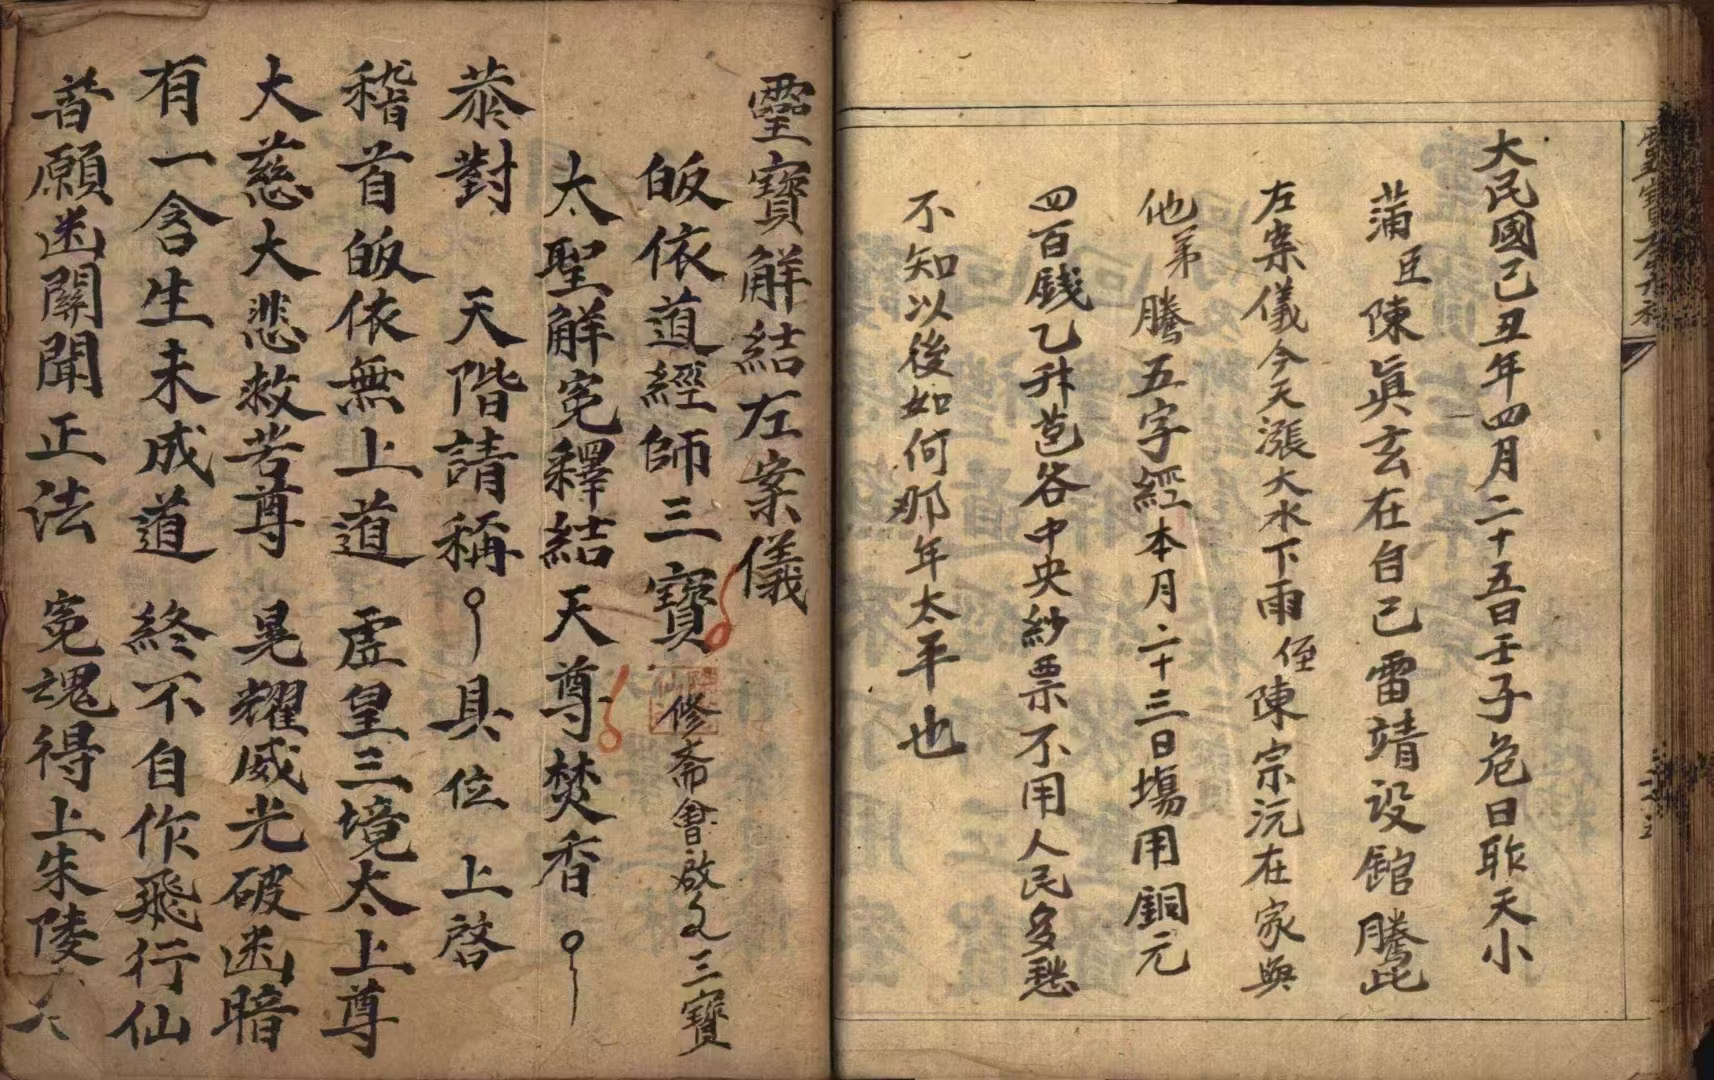 大民國己丑年四月二十五日壬子危日昨天小
蒲臣陳眞玄在自己雷靖设舘騰此
左案儀今天漲大水下雨侄陳宗沅在家與
他弟騰五字經本月二十三日塲用銅元
四百銭乙升苞谷中央紗票不用人民多愁
不知以後如何那年太平也
靈寶解結左案儀
皈依道經師三寶修斋會啟文三寶
太聖解寃釋結天尊焚香
恭對 天階請稱具位上啓
稽首皈依無上道 虛皇三境太上尊
大慈大悲救苦尊 晃耀威光破幽暗
有一含生未成道 終不自作飛行仙
普願幽關聞正法 寃魂得上朱陵